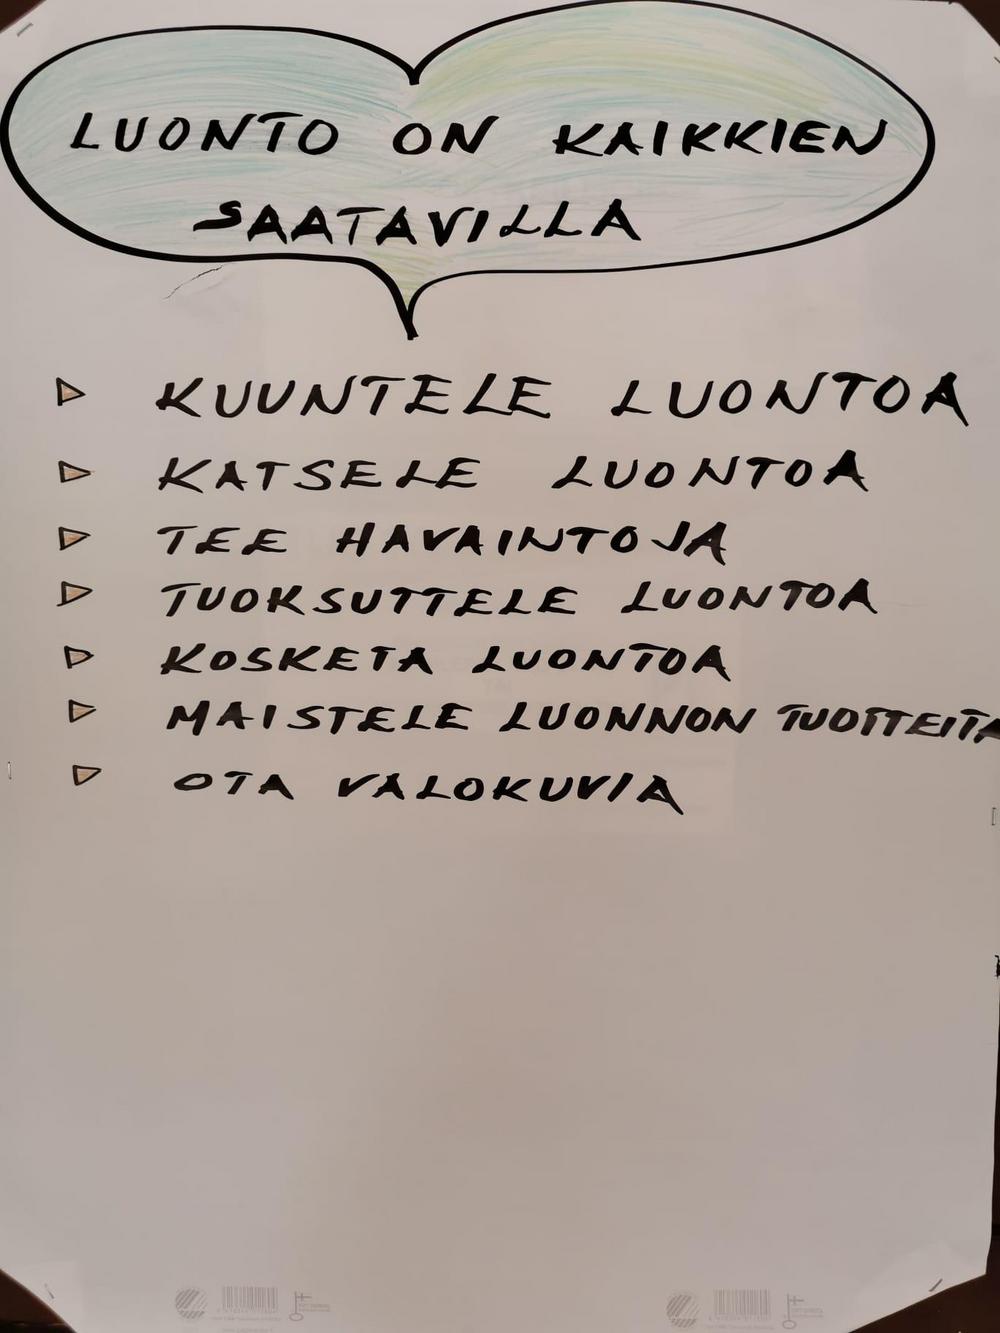 LUONTO ON KAIKKIEN
SAATAVILLA
KUUNTELE LUONTOA
KATSELE LUONTOA
TEE HAVAINTOJA
TUOKSUTTELE LUONTOA
KOSKETA LUONTOA
MAISTELE LUONNON TUOTTEITA
OTA VALOKUVIA